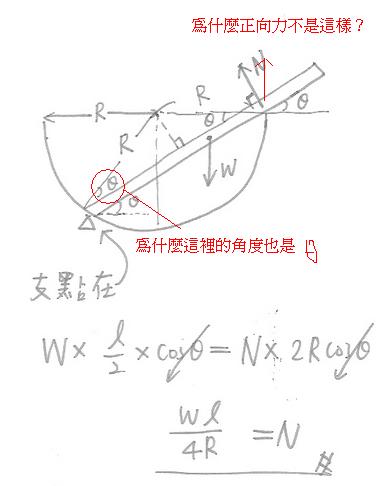 為什麼正向力不是這樣？
N
R
θ
θ
R
R
W
θ
θ
為什麼這裡的角度也是 θ
支點在
W × l/2 × cosθ = N × 2R cosθ
Wl/4R = N #